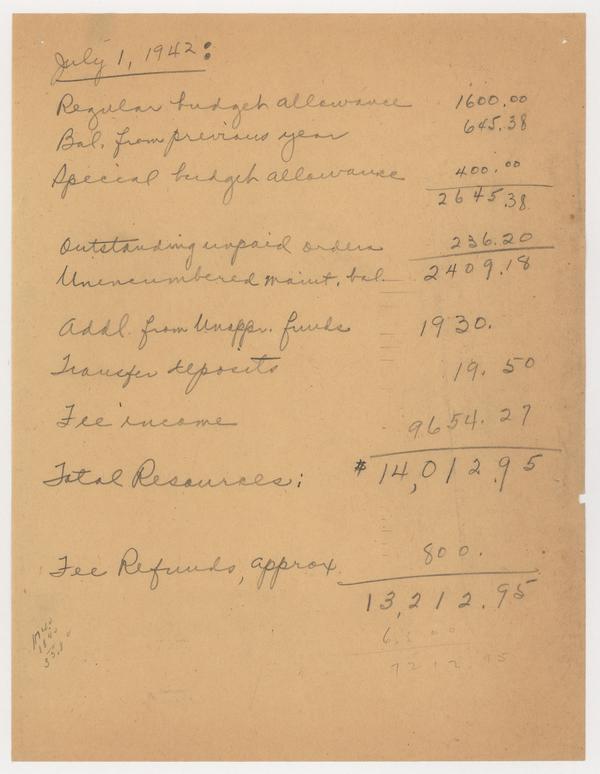 July 1, 1942:
Regular budget allowance 1600.00
Bal. from previous year 645.38
Special budget allowance 400.00
2645.38
Outstanding unpaid orders 236.20
Unencumbered maint. bal. 2409.18
Addl. from Unappr. funds 1930.
Transfer deposits 19.50
Fee income 9654.27
Total Resources: $14,012.95
Fee Refunds, approx 800.
13,212.95
7212.95